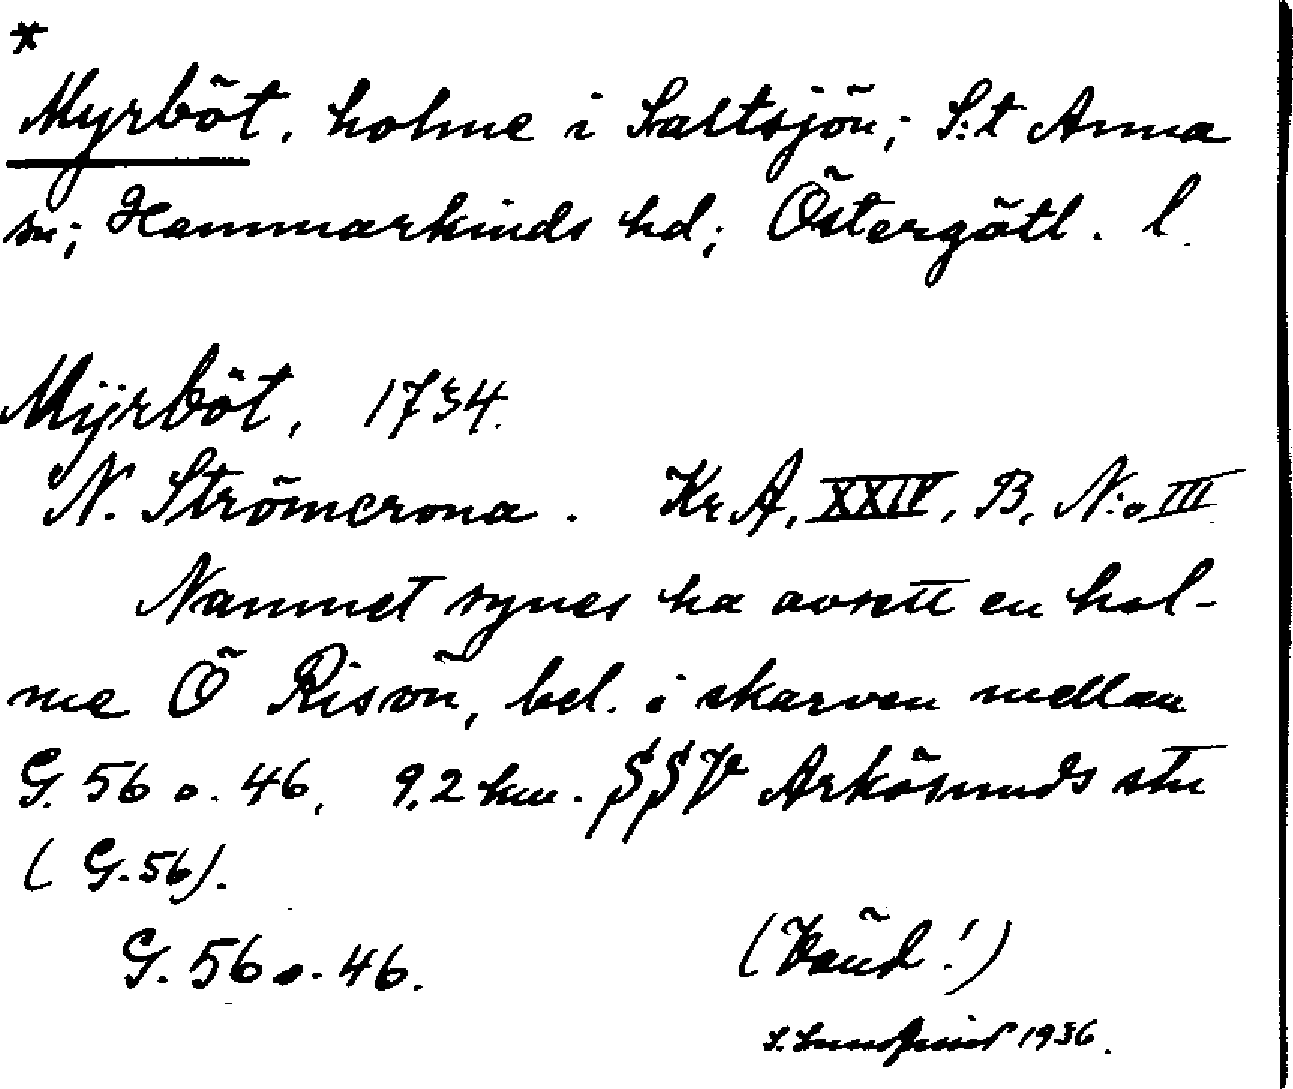 *
Myrböt, holme i Saltsjön; S:t Anna
sn; Hammarkinds hd; Östergötl. l.
Mÿrböt, 1734.
N. Strömcrona. Kr. A, XXIV, B, N:o III
Namnet synes ha avsett en hol-
me Ö Risön, bel. i skarven mellan
G. 56 o. 46, 9,2 km. SSV Arkösunds stn
(G. 56).
G. 56 o. 46.
(Vänd!)
S. Lundqvist 1936.